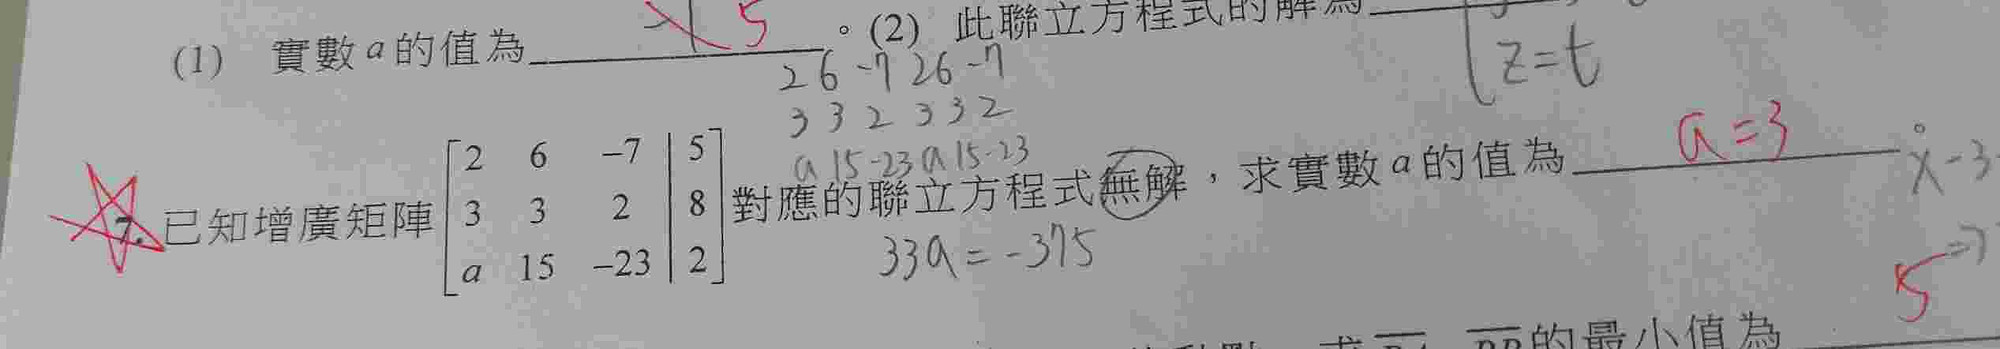 (1) 實數a的值為 5 。(2) 此聯立方程式的解為
z=t
2 6 -7 2 6 -7
3 3 2 3 3 2
a 15 -23 a 15 -23
7. 已知增廣矩陣 [2 6 -7 | 5; 3 3 2 | 8; a 15 -23 | 2] 對應的聯立方程式無解，求實數a的值為 a=3
33a=-375
x-3
5
的最小值為